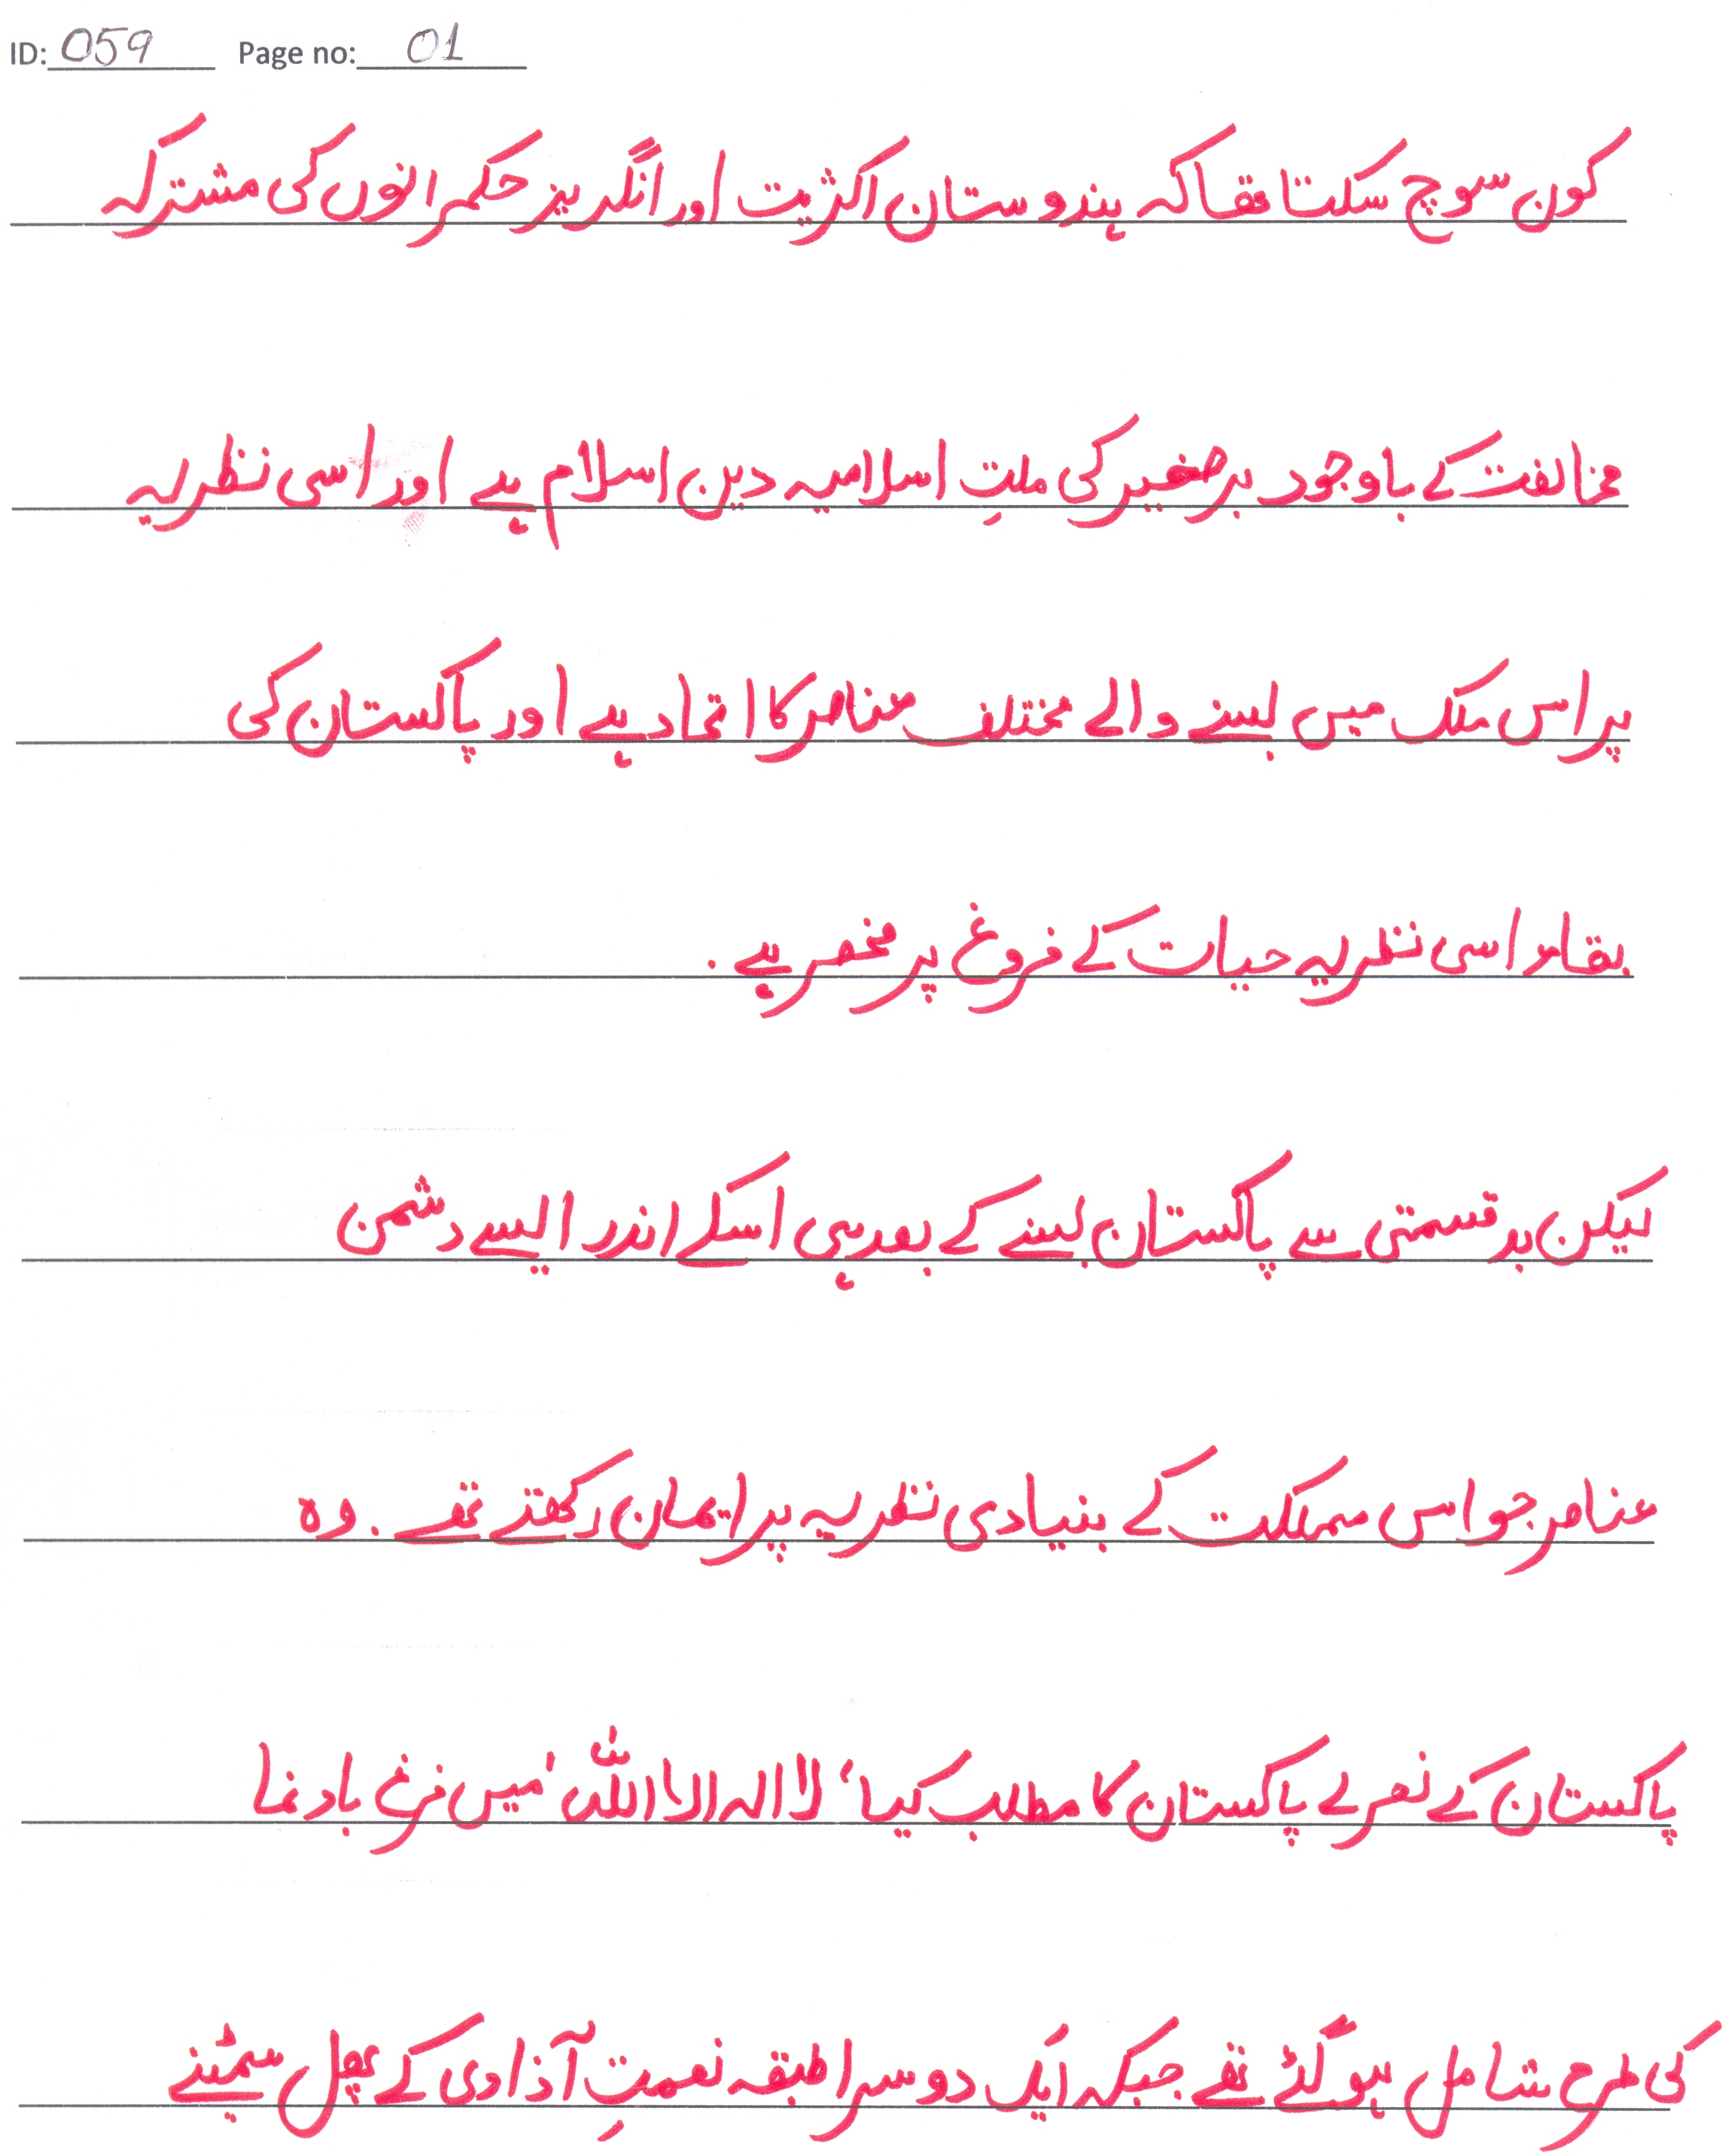 ID: 059 Page no: 01
کون سوچ سکتا تھا کہ ہندوستان اکثریت اور انگریز حکمرانوں کی مشترکہ
مخالفت کے باوجود برصغیر کی ملتِ اسلامیہ دین اسلام ہے اور اسی نظریہ
پر اس ملک میں بسنے والے مختلف عناصر کا اتحاد ہے اور پاکستان کی
بقاء اسی نظریہ حیات کے فروغ پر منحصر ہے .
لیکن بدقسمتی سے پاکستان بننے کے بعد ہی اسکے اندر ایسے دشمن
عناصر جو اس مملکت کے بنیادی نظریہ پر ایمان رکھتے تھے . وہ
پاکستان کے نعرے پاکستان کا مطلب کیا ' لا الہ الا اللہ ' میں فریاد نما
کی طرح شامل ہو گئے تھے جبکہ ایک دوسرا طبقہ نعمتِ آذادی کے پھل سمیٹنے